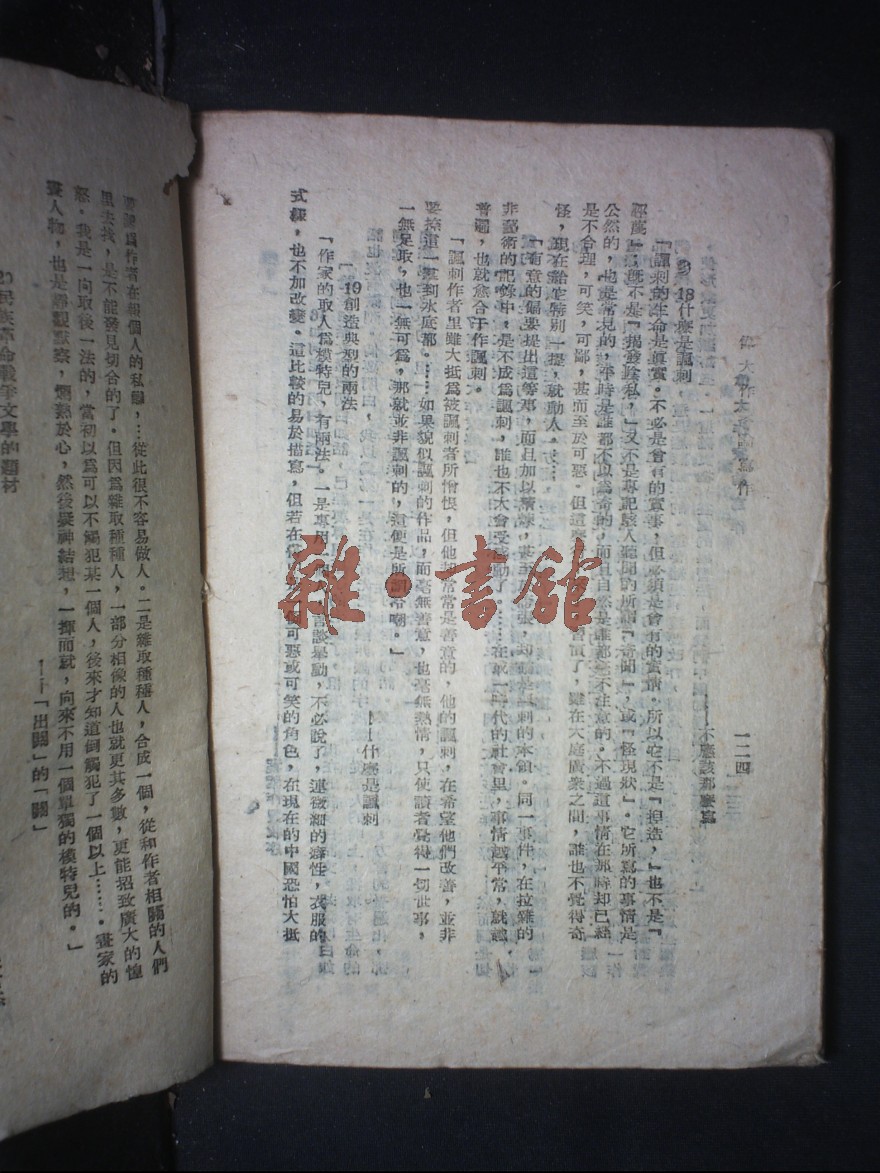 一二四
——不應該那麼寫
18什麼是諷刺
「諷刺的生命是真實。不必是會有的實事,但必須是會有的實情。所以它不是『捏造,』也不是『
誣蔑』;既不是『揭發陰私,』又不是專記駭人聽聞的所謂『奇聞』,或『怪現狀』。它所寫的事情是
公然的,也是常見的,平時是誰都不以為奇的,而且自然是誰都毫不注意的。不過這事情在那時却已經
是不合理,可笑,可鄙,甚而至於可惡。但這 習慣了,雖在大庭廣衆之間,誰也不覺得奇
怪,現在給它特別一提,就動人。……
「有意的偏要提出這等事,而且加以精鍊,甚至 張, 諷刺的本領。同一事件,在拉雜的
非藝術的記錄中,是不成為諷刺,誰也不大會受感動了……在或一時代的社會里,事情越平常,就越
普遍,也就愈合于作諷刺。
「諷刺作者里雖大抵為被諷刺者所憎恨,但他却常常是善意的,他的諷刺,在希望他們改善,並非
要捺這一羣到水底都。……如果貌似諷刺的作品,而毫無善意,也毫無熱情,只使讀者覺得一切世事,
一無足取,也一無可為,那就並非諷刺的,這便是所謂冷嘲。」
什麼是諷刺
19創造典型的兩法
「作家的取人為模特兒,有兩法。一是專用 言談舉動,不必說了,連微細的癖性,衣服的
式樣,也不加改變。這比較的易於描寫,但若在 可惡或可笑的角色,在現在的中國恐怕大抵
為作者在報個人的私讎,…從此很不容易做人。二是雜取種種人,合成一個,從和作者相關的人們
里去找,是不能發見切合的了。但因為雜取種種人,一部分相像的人也就更其多數,更能招致廣大的惶
怒。我是一向取後一法的,當初以為可以不觸犯某一個人,後來才知道倒觸犯了一個以上……。畫家的
畫人物,也是靜觀默察,爛熟於心,然後凝神結想,一揮而就,向來不用一個單獨的模特兒的。」
——「出關」的「關」
20民族革命戰爭文學的題材
雜·書館